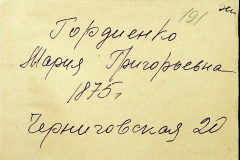 191
Гордиенко
Мария Григорьевна
1875 г
Черниговская 20